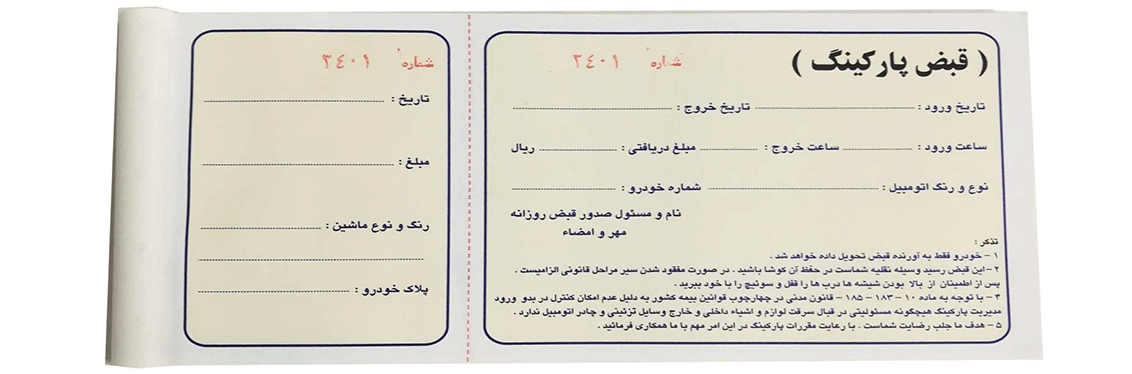 ( قبض پارکینگ )
شماره ۳٤۰۱
تاریخ ورود : تاریخ خروج :
ساعت ورود : ساعت خروج : مبلغ دریافتی : ریال
نوع و رنگ اتومبیل : شماره خودرو :
نام و مسئول صدور قبض روزانه
مهر و امضاء
تذکر :
۱ – خودرو فقط به آورنده قبض تحویل داده خواهد شد .
۲ – این قبض رسید وسیله نقلیه شماست در حفظ آن کوشا باشید . در صورت مفقود شدن سیر مراحل قانونی الزامیست .
پس از اطمینان از بالا بودن شیشه ها درب ها را قفل و سوئیچ را با خود ببرید .
۴ – با توجه به ماده ۱۰ – ۱۸۳ – ۱۸۵ – قانون مدنی در چهارچوب قوانین بیمه کشور به دلیل عدم امکان کنترل در بدو ورود
مدیریت پارکینگ هیچگونه مسئولیتی در قبال سرقت لوازم و اشیاء داخلی و خارج وسایل تزئینی و چادر اتومبیل ندارد .
۵ – هدف ما جلب رضایت شماست . با رعایت مقررات پارکینگ در این امر مهم با ما همکاری فرمائید .
شماره ۳٤۰۱
تاریخ :
مبلغ :
رنگ و نوع ماشین :
پلاک خودرو :